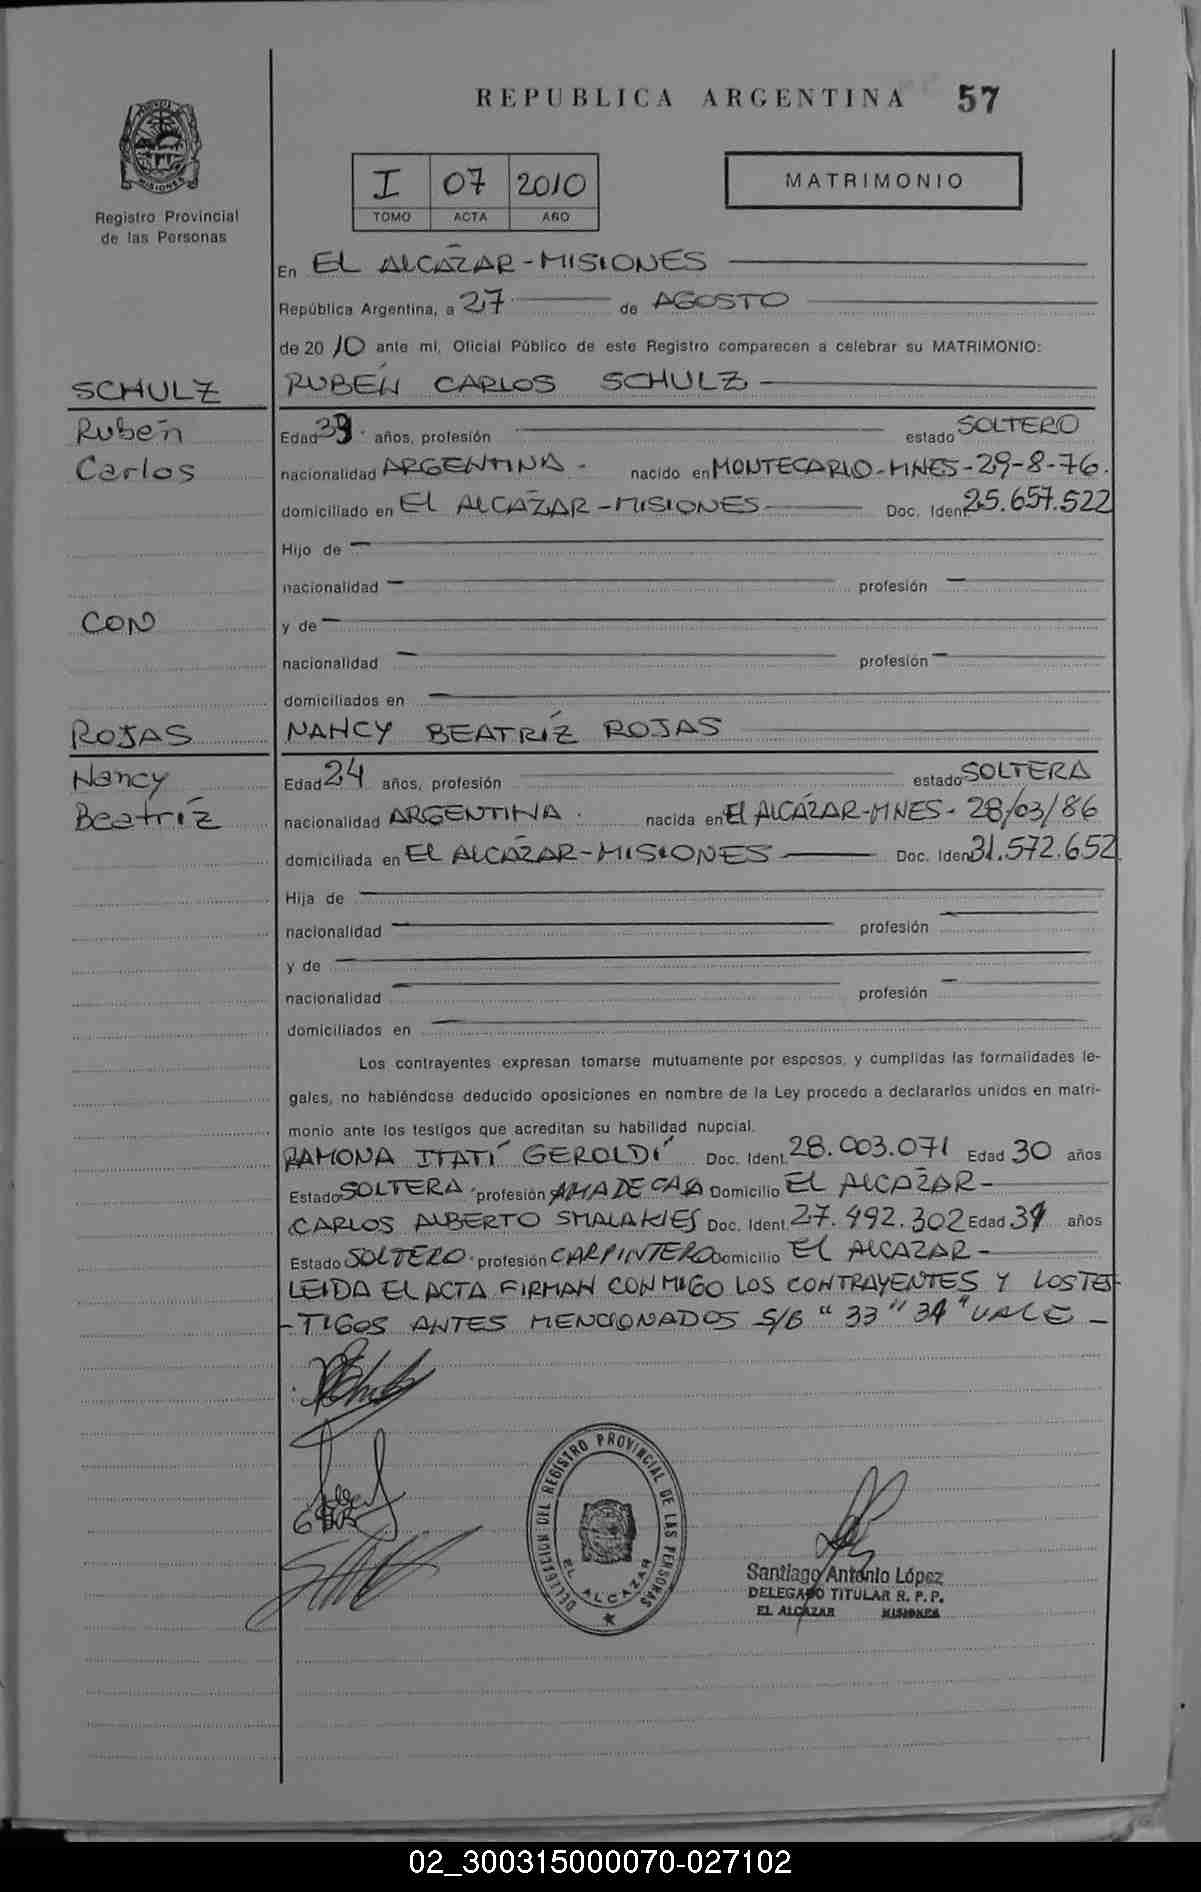 REPUBLICA ARGENTINA 57
MISIONES
Registro Provincial
de las Personas
I 07 2010
TOMO ACTA AÑO
MATRIMONIO
En EL ALCÁZAR - MISIONES
República Argentina, a 27 de AGOSTO
de 20 10 ante mí, Oficial Público de este Registro comparecen a celebrar su MATRIMONIO:
SCHULZ
Rubén
Carlos
CON
ROJAS
Nancy
Beatríz
RUBÉN CARLOS SCHULZ
Edad años, profesión estado SOLTERO
nacionalidad ARGENTINA - nacido en MONTECARLO - MNES - 29-8-76.
domiciliado en EL ALCÁZAR - MISIONES Doc. Ident. 25.657.522
Hijo de
nacionalidad profesión
y de
nacionalidad profesión
domiciliados en
NANCY BEATRÍZ ROJAS
Edad 24 años, profesión estado SOLTERA
nacionalidad ARGENTINA . nacida en El ALCÁZAR - MNES - 28/03/86
domiciliada en EL ALCÁZAR - MISIONES Doc. Iden 31.572.652
Hija de
nacionalidad profesión
y de
nacionalidad profesión
domiciliados en
Los contrayentes expresan tomarse mutuamente por esposos, y cumplidas las formalidades le-
gales, no habiéndose deducido oposiciones en nombre de la Ley procedo a declararlos unidos en matri-
monio ante los testigos que acreditan su habilidad nupcial.
RAMONA ITATÍ GEROLDÍ Doc. Ident. 28.003.071 Edad 30 años
Estado SOLTERA profesión AMA DE CASA Domicilio EL ALCÁZAR -
CARLOS ALBERTO SMALAKIES Doc. Ident. 27.492.302 Edad 34 años
Estado SOLTERO profesión CARPINTERO Domicilio EL ALCAZAR -
LEIDA EL ACTA FIRMAN CONMIGO LOS CONTRAYENTES Y LOS TES-
-TIGOS ANTES MENCIONADOS S/B "33" 34" VALE -
DELEGACION DEL REGISTRO PROVINCIAL DE LAS PERSONAS
EL ALCAZAR
Santiago Antonio López
DELEGADO TITULAR R. P. P.
EL ALCAZAR MISIONES
02_300315000070-027102